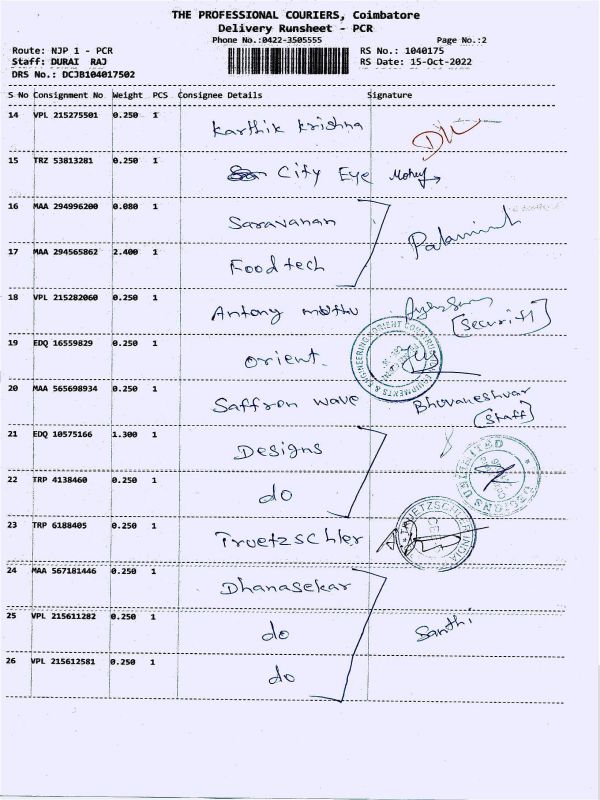 THE PROFESSIONAL COURIERS, Coimbatore
Delivery Runsheet - PCR
Phone No.:0422-3505555 Page No.:2
Route: NJP 1 - PCR RS No.: 1040175
Staff: DURAI RAJ RS Date: 15-Oct-2022
DRS No.: DCJB104017502
S No Consignment No Weight PCS Consignee Details Signature
14 VPL 215275501 0.250 1 Karthik Krishna
15 TRZ 53813281 0.250 1 City Eye
16 MAA 294996200 0.080 1 Saravanan
17 MAA 294565862 2.400 1 Foodtech
18 VPL 215282060 0.250 1 Antony muthu [Security]
19 EDQ 16559829 0.250 1 Orient.
20 MAA 565698934 0.250 1 Saffron wave Bhuvaneshvar
[Staff]
21 EDQ 10575166 1.300 1 Designs
22 TRP 4138460 0.250 1 do
23 TRP 6188405 0.250 1 Truetzschler
24 MAA 567181446 0.250 1 Dhanasekar
25 VPL 215611282 0.250 1 do Santhi
26 VPL 215612581 0.250 1 do